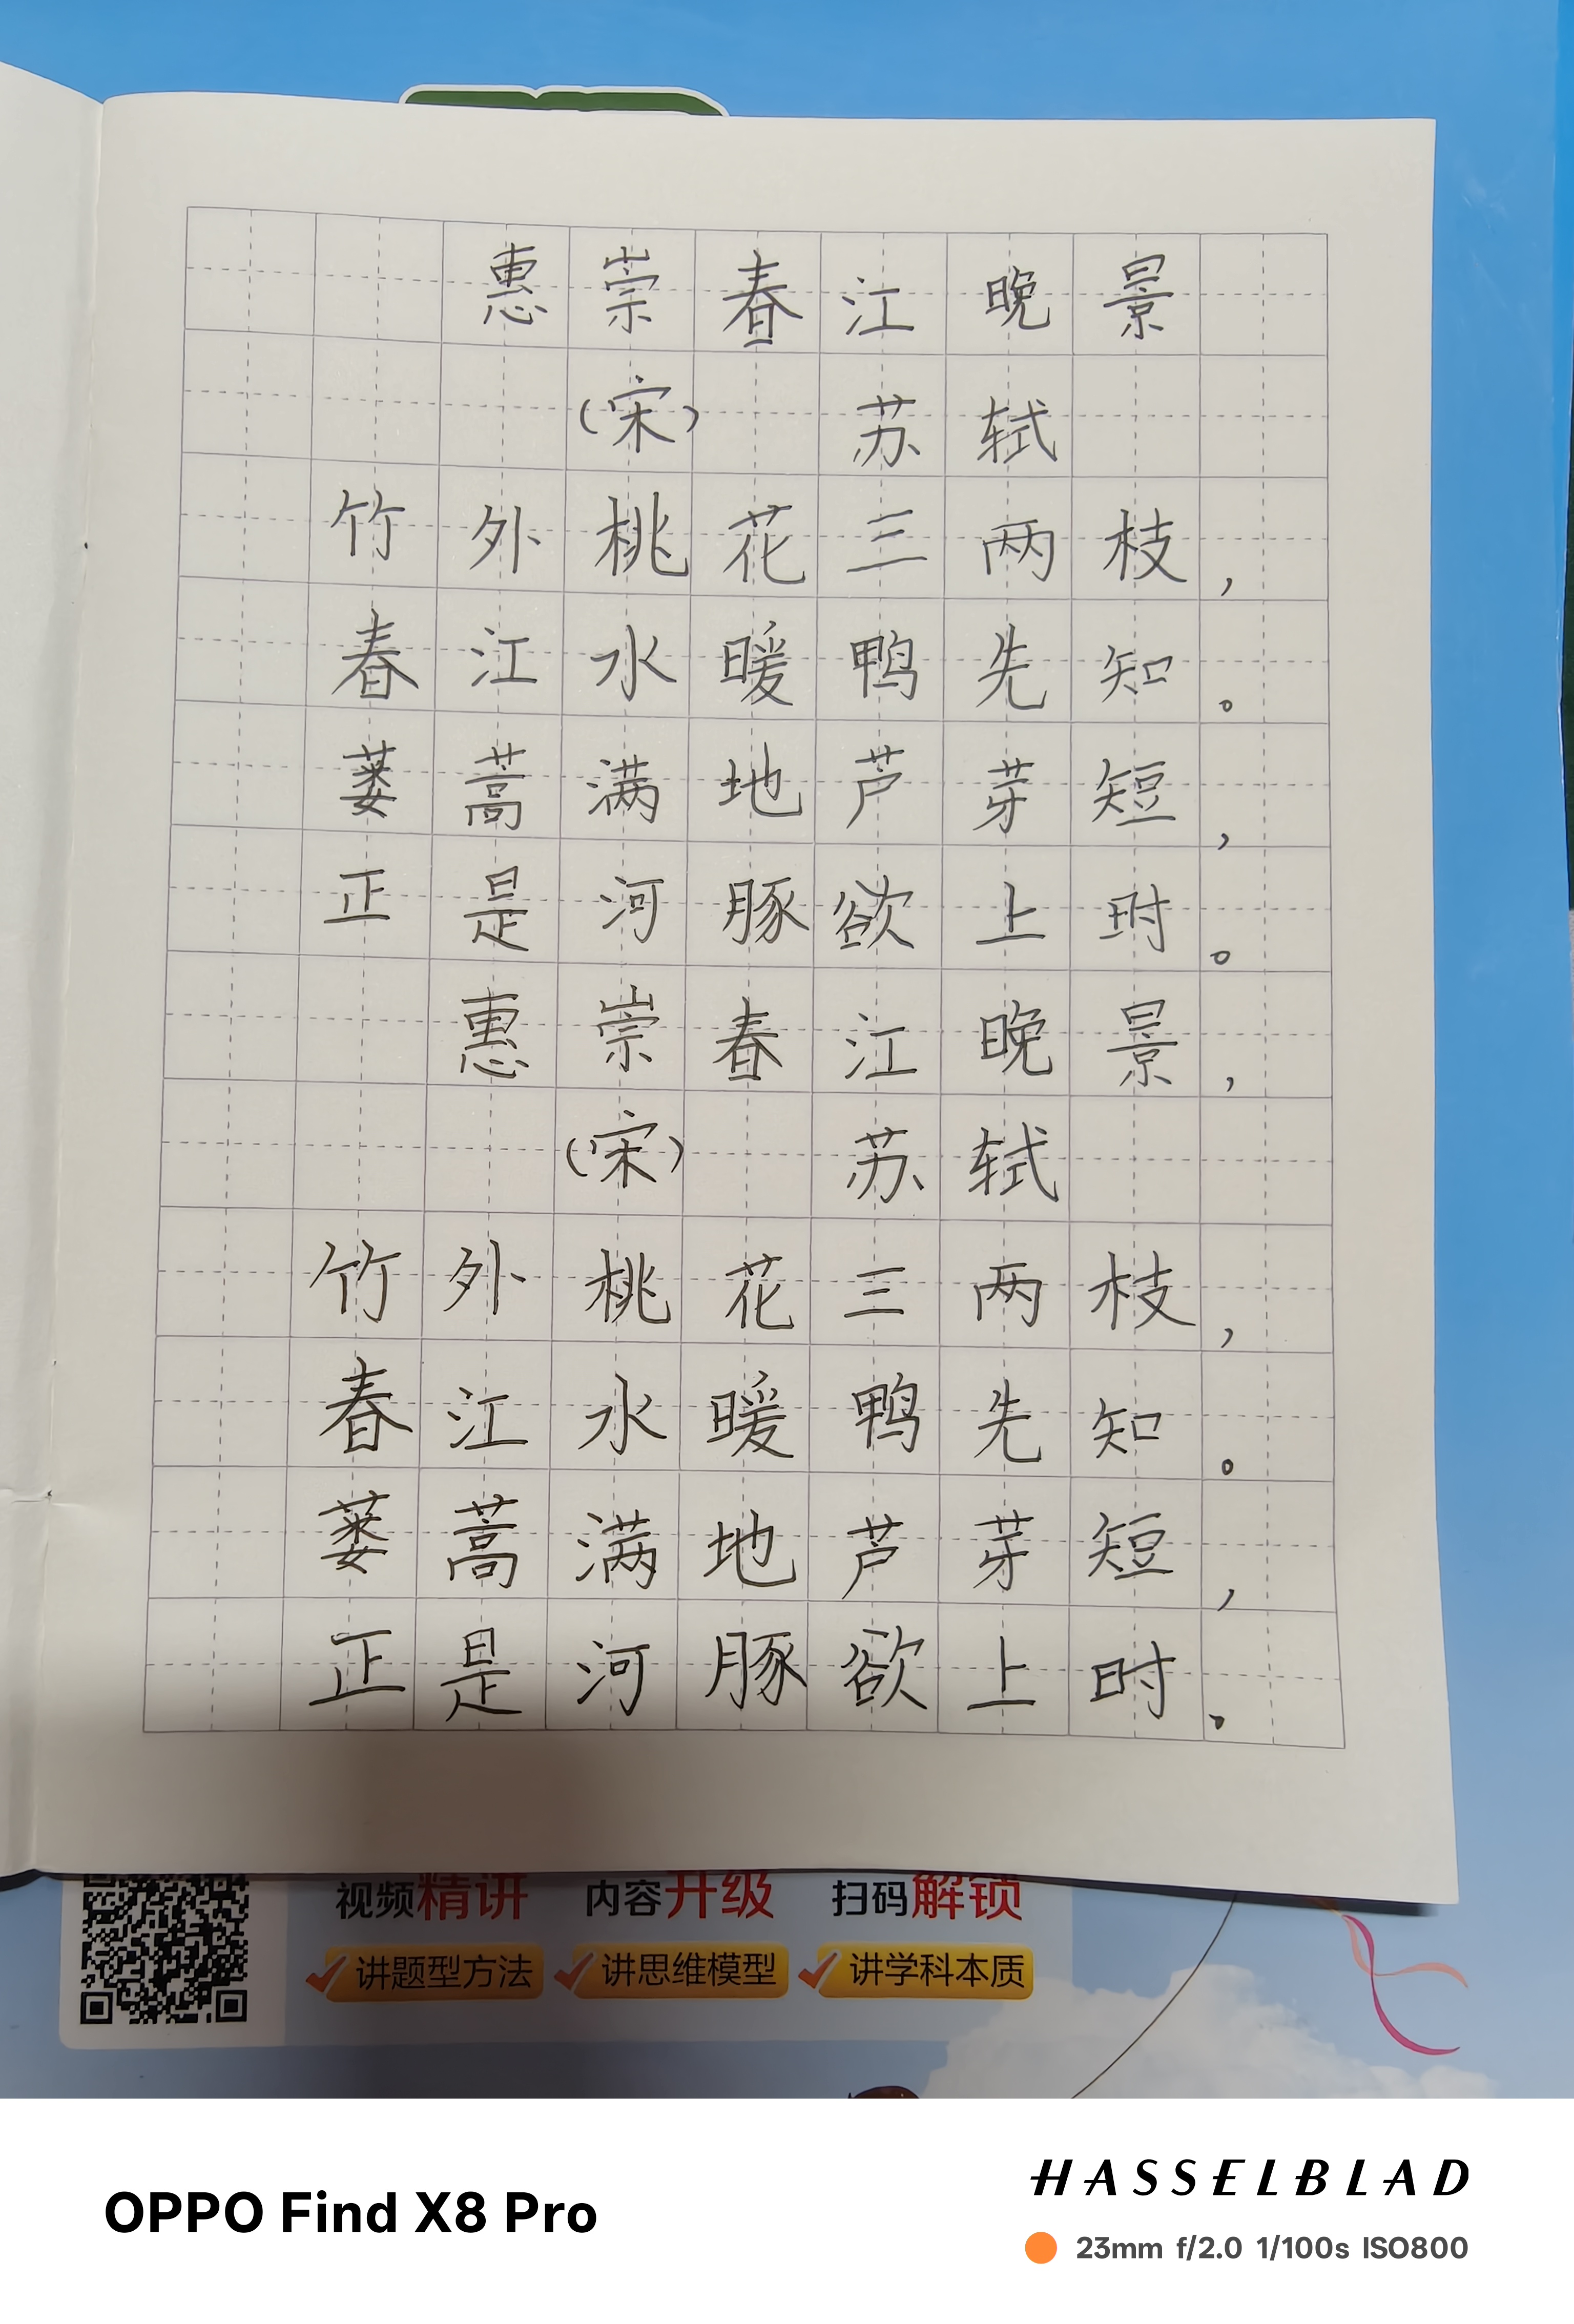 惠崇春江晚景
(宋) 苏轼
竹外桃花三两枝，
春江水暖鸭先知。
蒌蒿满地芦芽短，
正是河豚欲上时。
惠崇春江晚景，
(宋) 苏轼
竹外桃花三两枝，
春江水暖鸭先知。
蒌蒿满地芦芽短，
正是河豚欲上时。
视频精讲 内容升级 扫码解锁
讲题型方法 讲思维模型 讲学科本质
HASSELBLAD
OPPO Find X8 Pro
23mm f/2.0 1/100s ISO800